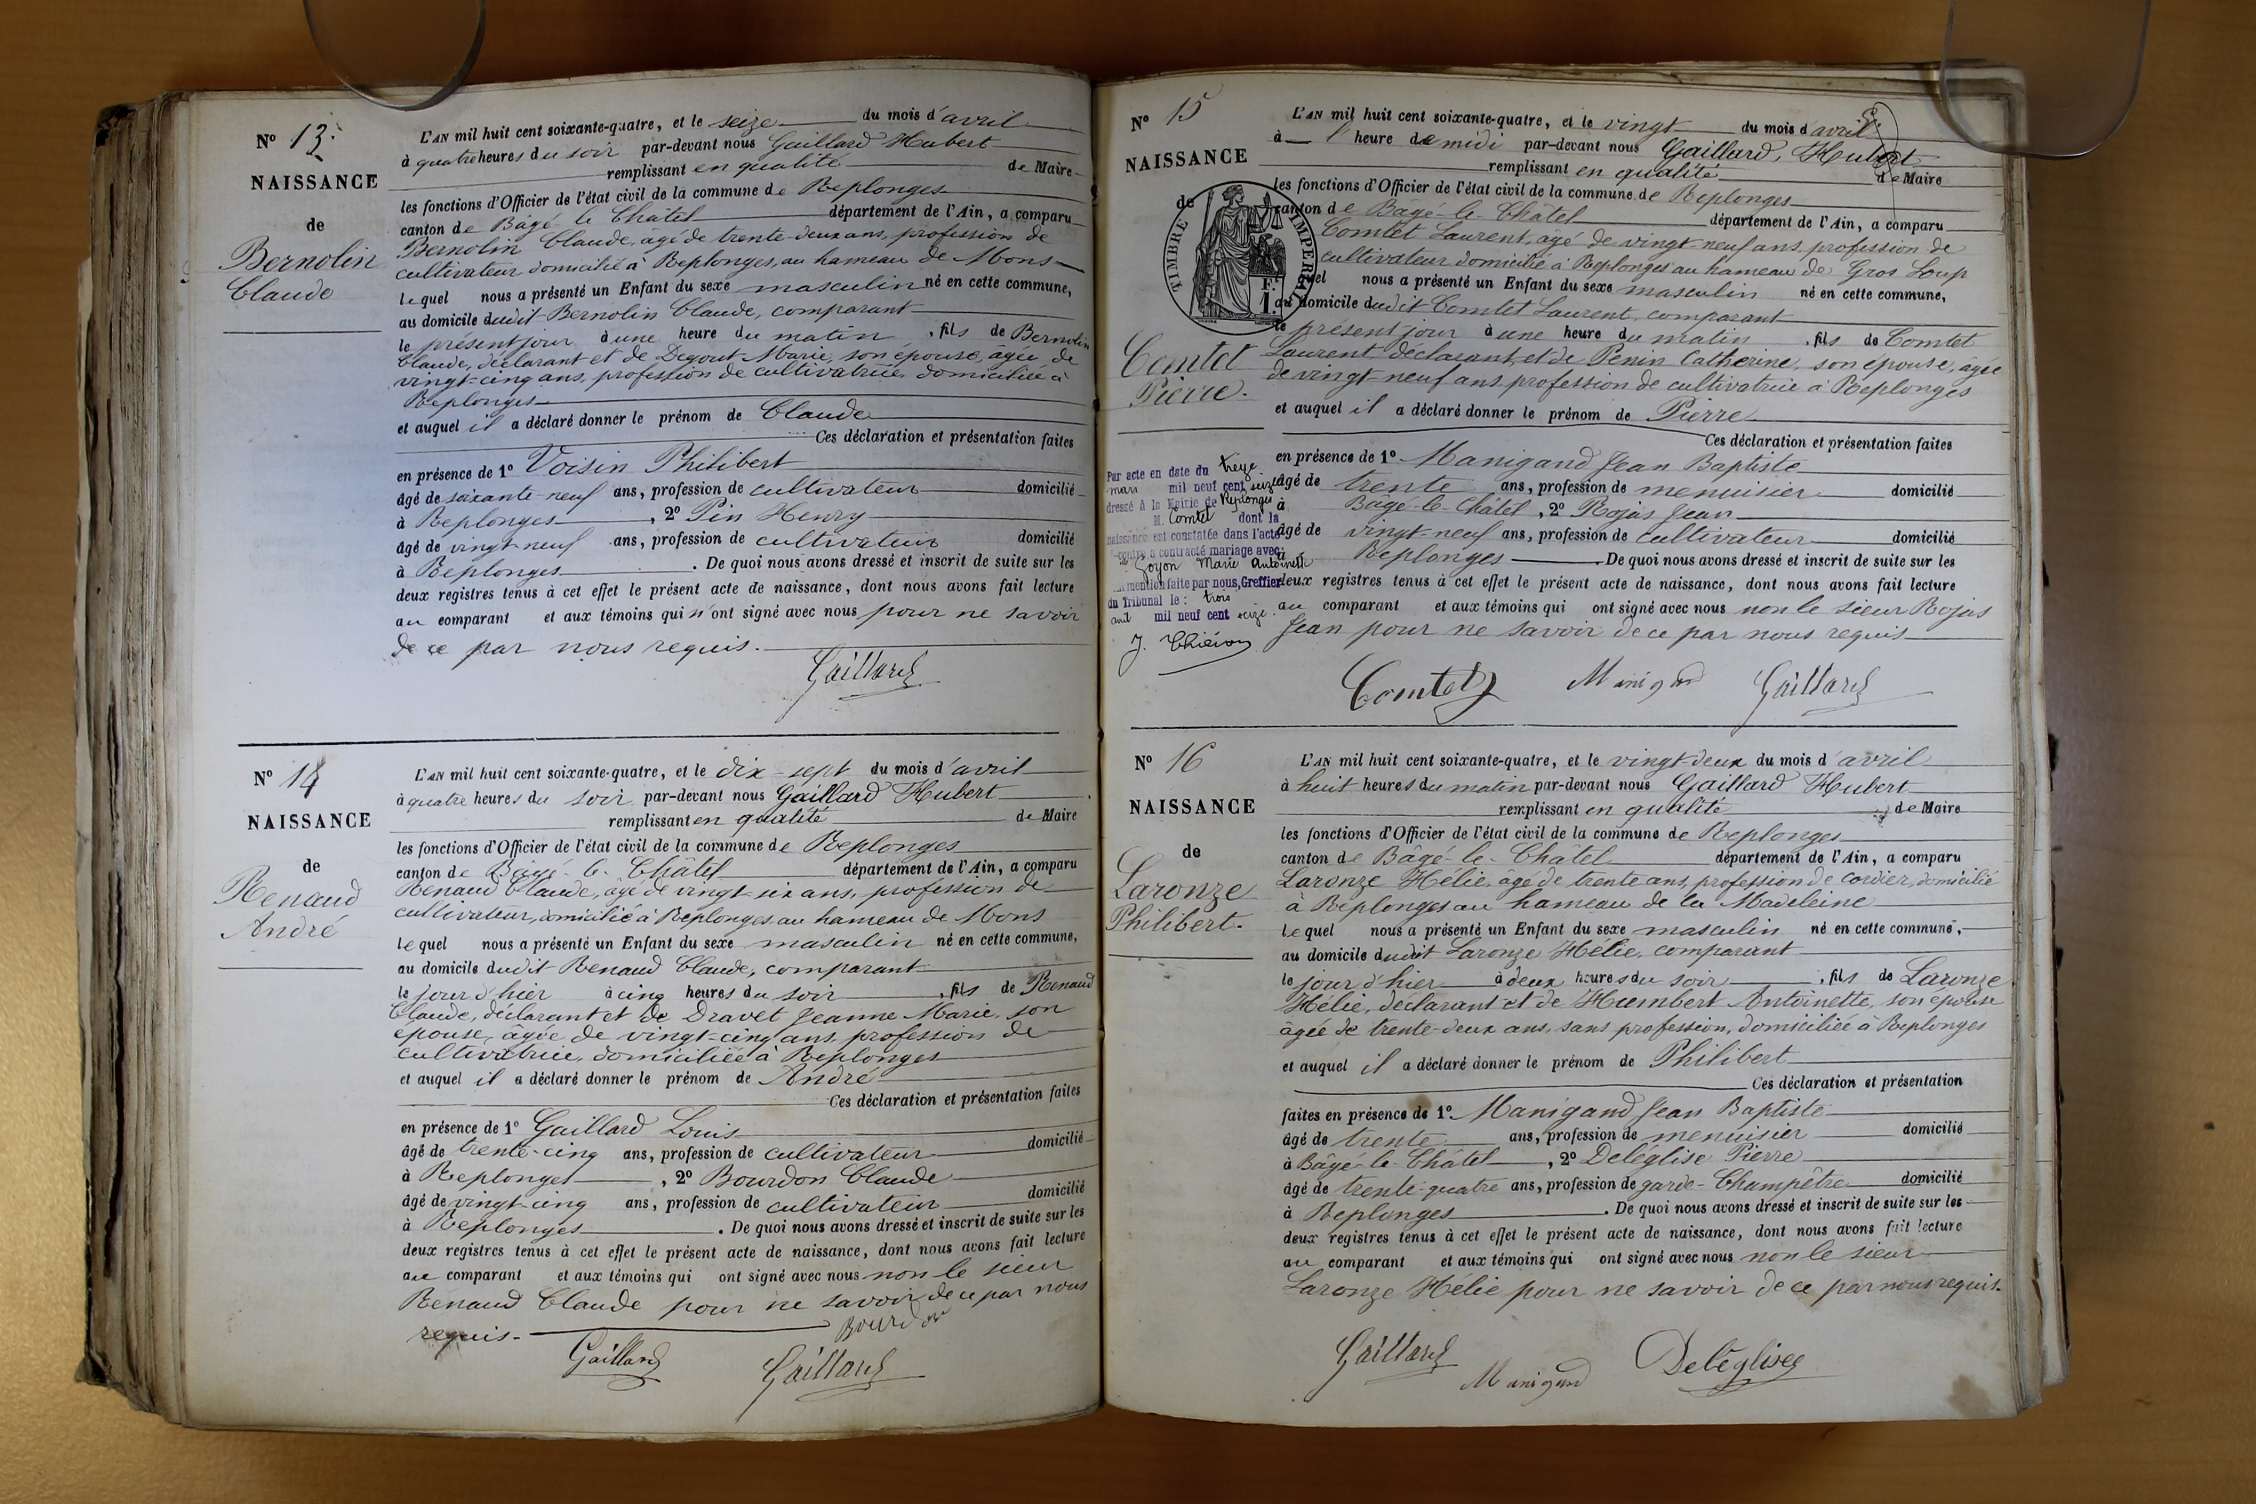 N° 13.
NAISSANCE
de
Bernolin
Claude
L'AN mil huit cent soixante-quatre, et le seize du mois d'avril
à quatre heures du soir par-devant nous Gaillard Hubert
remplissant en qualité de Maire
les fonctions d'Officier de l'état civil de la commune de Replonges
canton de Bâgé-le-Châtel département de l'Ain, a comparu
Bernolin Claude, âgé de trente-deux ans, profession de
cultivateur domicilié à Replonges, au hameau de Mons
lequel nous a présenté un Enfant du sexe masculin né en cette commune,
au domicile dudit Bernolin Claude, comparant
le présent jour à une heure du matin, fils de Bernolin
Claude, déclarant et de Degout Marie, son épouse, âgée de
vingt-cinq ans, profession de cultivatrice domiciliée à
Replonges
et auquel il a déclaré donner le prénom de Claude
Ces déclaration et présentation faites
en présence de 1° Voisin Philibert
âgé de soixante-neuf ans, profession de cultivateur domicilié
à Replonges, 2° Pin Henry
âgé de vingt-neuf ans, profession de cultivateur domicilié
à Replonges. De quoi nous avons dressé et inscrit de suite sur les
deux registres tenus à cet effet le présent acte de naissance, dont nous avons fait lecture
au comparant et aux témoins qui n'ont signé avec nous pour ne savoir
de ce par nous requis.
Gaillard
N° 14
NAISSANCE
de
Renaud
André
L'AN mil huit cent soixante-quatre, et le dix-sept du mois d'avril
à quatre heures du soir par-devant nous Gaillard Hubert
remplissant en qualité de Maire
les fonctions d'Officier de l'état civil de la commune de Replonges
canton de Bâgé-le-Châtel département de l'Ain, a comparu
Renaud Claude, âgé de vingt six ans, profession de
cultivateur, domicilié à Replonges, au hameau de Mons
lequel nous a présenté un Enfant du sexe masculin né en cette commune,
au domicile dudit Renaud Claude, comparant
le jour d'hier à cinq heures du soir, fils de Renaud
Claude, déclarant et de Dravet Jeanne Marie, son
épouse, âgée de vingt-cinq ans, profession de
cultivatrice, domiciliée à Replonges
et auquel il a déclaré donner le prénom de André
Ces déclaration et présentation faites
en présence de 1° Gaillard Louis
âgé de trente-cinq ans, profession de cultivateur domicilié
à Replonges, 2° Bourdon Claude
âgé de vingt-cinq ans, profession de cultivateur domicilié
à Replonges. De quoi nous avons dressé et inscrit de suite sur les
deux registres tenus à cet effet le présent acte de naissance, dont nous avons fait lecture
au comparant et aux témoins qui ont signé avec nous non le sieur
Renaud Claude pour ne savoir de ce par nous
requis.
Bourdon
Gaillard Gaillard
N° 15
NAISSANCE
de
TIMBRE IMPERIAL
1 F.
Comtet
Pierre.
Par acte en date du treize
mars mil neuf cent seize
dressé à la Mairie de Replonges
M. Comtet dont la
naissance est constatée dans l'acte
ci-contre a contracté mariage avec
Goyon Marie Antoinette
mention faite par nous, Greffier
du Tribunal le: trois
avril mil neuf cent seize.
L'AN mil huit cent soixante-quatre, et le vingt du mois d'avril
à l'heure de midi par-devant nous Gaillard, Hubert
remplissant en qualité de Maire
les fonctions d'Officier de l'état civil de la commune de Replonges
canton de Bâgé-le-Châtel département de l'Ain, a comparu
Comtet Laurent, âgé de vingt-neuf ans, profession de
cultivateur domicilié à Replonges au hameau de Gros Loup
lequel nous a présenté un Enfant du sexe masculin né en cette commune,
au domicile dudit Comtet Laurent, comparant
le présent jour à une heure du matin, fils de Comtet
Laurent déclarant, et de Penin Catherine, son épouse, âgée
de vingt-neuf ans profession de cultivatrice à Replonges
et auquel il a déclaré donner le prénom de Pierre
Ces déclaration et présentation faites
en présence de 1° Manigand Jean Baptiste
âgé de trente ans, profession de menuisier domicilié
à Bâgé-le-Châtel, 2° Rojas Jean
âgé de vingt-neuf ans, profession de cultivateur domicilié
à Replonges. De quoi nous avons dressé et inscrit de suite sur les
deux registres tenus à cet effet le présent acte de naissance, dont nous avons fait lecture
au comparant et aux témoins qui ont signé avec nous non le sieur Rojas
Jean pour ne savoir de ce par nous requis
Comtet Manigand Gaillard
N° 16
NAISSANCE
de
Laronze
Philibert.
L'AN mil huit cent soixante-quatre, et le vingt-deux du mois d'avril
à huit heures du matin par-devant nous Gaillard Hubert
remplissant en qualité de Maire
les fonctions d'Officier de l'état civil de la commune de Replonges
canton de Bâgé-le-Châtel département de l'Ain, a comparu
Laronze Hélie, âgé de trente ans, profession de cordier, domicilié
à Replonges au hameau de la Madeleine
lequel nous a présenté un Enfant du sexe masculin né en cette commune,
au domicile dudit Laronze Hélie, comparant
le jour d'hier à deux heures du soir, fils de Laronze
Hélie, déclarant et de Humbert Antoinette, son épouse
âgée de trente-deux ans, sans profession, domiciliée à Replonges
et auquel il a déclaré donner le prénom de Philibert
Ces déclaration et présentation
faites en présence de 1° Manigand Jean Baptiste
âgé de trente ans, profession de menuisier domicilié
à Bâgé-le-Châtel, 2° Deléglise Pierre
âgé de trente-quatre ans, profession de garde-Champêtre domicilié
à Replonges. De quoi nous avons dressé et inscrit de suite sur les
deux registres tenus à cet effet le présent acte de naissance, dont nous avons fait lecture
au comparant et aux témoins qui ont signé avec nous non le sieur
Laronze Hélie pour ne savoir de ce par nous requis.
Gaillard Manigand Deléglise